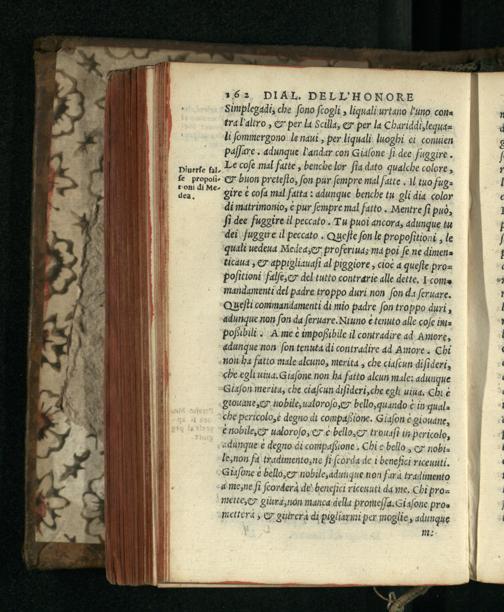 162 DIAL. DELL'HONORE
Simplegadi, che sono scogli, liquali urtano l'uno con-
tra l'altro, & per la Scilla, & per la Chariddi, lequa-
li sommergono le naui, per liquali luoghi ci conuien
passare. adunque l'andar con Giasone si dee fuggire.
Le cose mal fatte, benche lor sia dato qualche colore,
& buon pretesto, son pur sempre mal fatte. Il tuo fug-
gire è cosa mal fatta: adunque benche tu gli dia color
di matrimonio, è pur sempre mal fatto. Mentre si può,
si dee fuggire il peccato. Tu puoi ancora, adunque tu
dei fuggire il peccato. Queste son le propositioni, le
quali uedeua Medea, & proferiua; ma poi se ne dimen-
ticaua, & appigliauasi al piggiore, cioè a queste pro-
positioni false, & del tutto contrarie alle dette. I com-
mandamenti del padre troppo duri non son da seruare.
Questi commandamenti di mio padre son troppo duri,
adunque non son da seruare. Niuno è tenuto alle cose im-
possibili. A me è impossibile il contradire ad Amore,
adunque non son tenuta di contradire ad Amore. Chi
non ha fatto male alcuno, merita, che ciascun disideri,
che egli uiua. Giasone non ha fatto alcun male: adunque
Giason merita, che ciascun disideri, che egli uiua. Chi è
giouane, & nobile, ualoroso, & bello, quando è in qual-
che pericolo, è degno di compassione. Giason è giouane,
è nobile, & ualoroso, & è bello, & trouasi in pericolo,
adunque è degno di compassione. Chi è bello, & nobi-
le, non fa tradimento, ne si scorda de i benefici riceuuti.
Giasone è bello, & nobile, adunque non farà tradimento
a me, ne si scorderà de' benefici riceuuti da me. Chi pro-
mette, & giura, non manca della promessa. Giasone pro-
metterà, & giurerà di pigliarmi per moglie, adunque
m:
Diuerse fal-
se proposi-
tioni di Me-
dea.